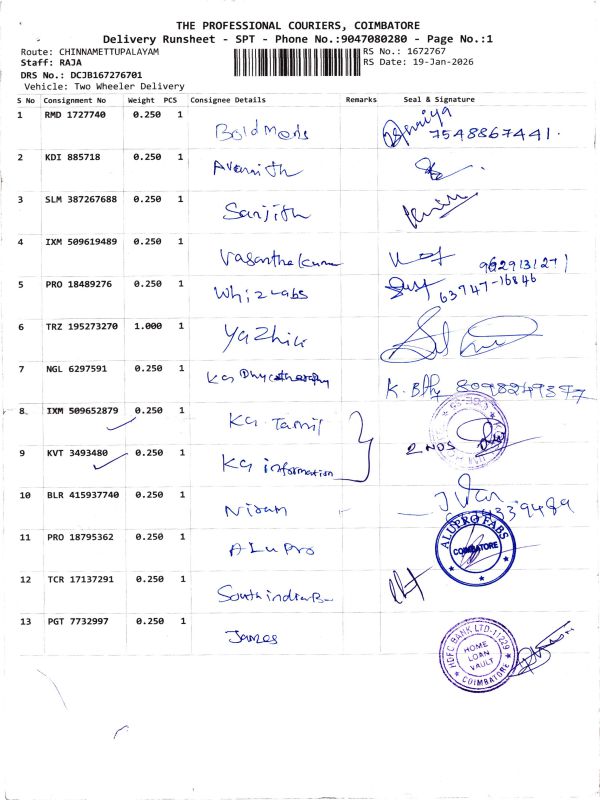 THE PROFESSIONAL COURIERS, COIMBATORE
Delivery Runsheet - SPT - Phone No.:9047080280 - Page No.:1
Route: CHINNAMETTUPALAYAM RS No.: 1672767
Staff: RAJA RS Date: 19-Jan-2026
DRS No.: DCJB167276701
Vehicle: Two Wheeler Delivery
S No Consignment No Weight PCS Consignee Details Remarks Seal & Signature
1 RMD 1727740 0.250 1 Bold Meds 7548867441.
2 KDI 885718 0.250 1
3 SLM 387267688 0.250 1 Sanjith
4 IXM 509619489 0.250 1 Vasanthakumar
9629131271
5 PRO 18489276 0.250 1 Whizlabs 63747-16846
6 TRZ 195273270 1.000 1 Yazhili
7 NGL 6297591 0.250 1 KG
8 IXM 509652879 0.250 1 KG Tamil 2 NOS
9 KVT 3493480 0.250 1 KG information
10 BLR 415937740 0.250 1
11 PRO 18795362 0.250 1 ALu Pro ALUPRO FABS COIMBATORE
12 TCR 17137291 0.250 1
13 PGT 7732997 0.250 1 James HDFC BANK LTD-11229 HOME LOAN VAULT COIMBATORE